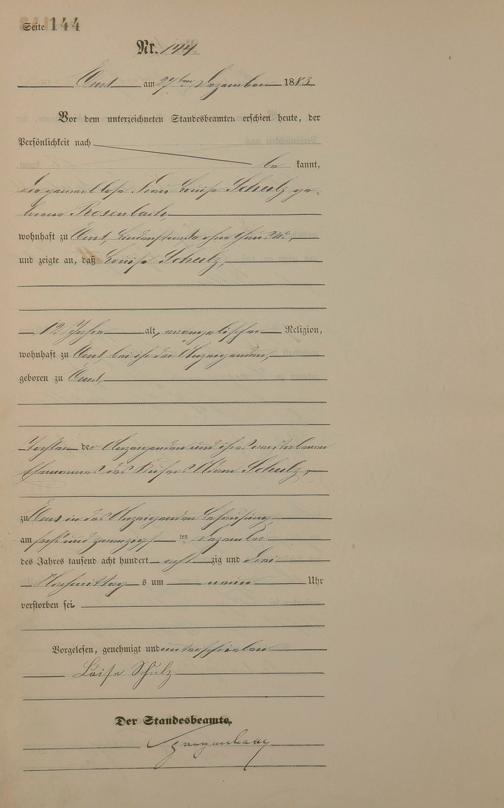 Seite 144
Nr. 144
am 27ten Dezember 1883
Vor dem unterzeichneten Standesbeamten erschien heute, der
Persönlichkeit nach
be kannt,
die gewerblose Frau Louise Schulz ge-
borene Rosenbach
wohnhaft zu
und zeigte an, daß Louise Schulz,
12 Jahre alt, evangelischer Religion,
wohnhaft zu bei ihr der Anzeigenden,
geboren zu
Tochter der Anzeigenden und ihres verstorbenen
Ehemannes des Schulz,
zu in der Anzeigenden Behausung
am sechs und zwanzigsten Dezember
des Jahres tausend acht hundert acht zig und drei
Nachmittags um neun Uhr
verstorben sei.
Vorgelesen, genehmigt und unterschrieben
Loise Schulz
Der Standesbeamte.